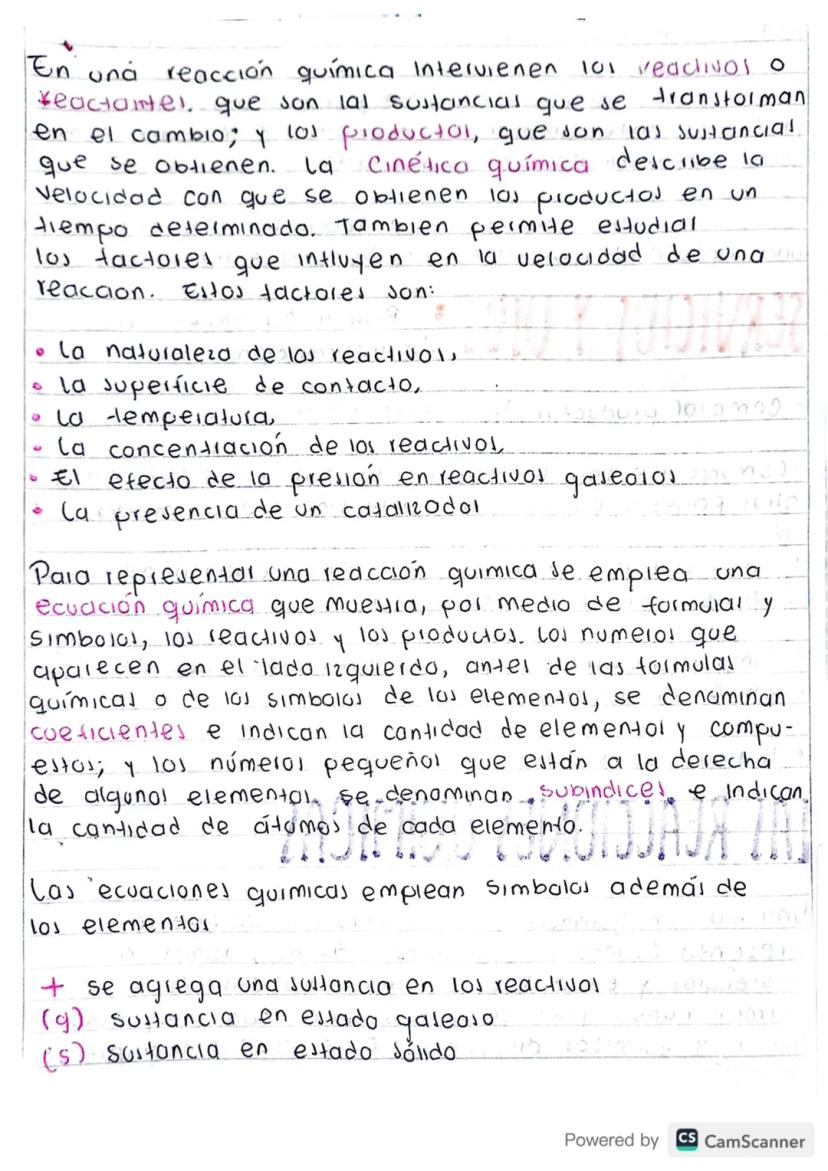 En una reacción química intervienen los reactivos o
reactantes, que son las sustancias que se transforman
en el cambio; y los productos, que son las sustancias
que se obtienen. La Cinética química describe la
velocidad con que se obtienen los productos en un
tiempo determinado. Tambien permite estudiar
los factores que influyen en la velocidad de una
reaccion. Estos factores son:
• La naturaleza de los reactivos,
• La superficie de contacto,
• La temperatura,
• La concentración de los reactivos,
• El efecto de la presión en reactivos gaseosos
• La presencia de un catalizador
Para representar una reacción quimica se emplea una
ecuación química que muestra, por medio de formulas y
simbolos, los reactivos y los productos. Los numeros que
aparecen en el lado izquierdo, antes de las formulas
químicas o de los simbolos de los elementos, se denominan
coeficientes e indican la cantidad de elementos y compu-
estos; y los números pequeños que están a la derecha
de algunos elementos, se denominan subindices, e indican
la cantidad de átomos de cada elemento.
Las ecuaciones quimicas emplean simbolos además de
los elementos
+ se agrega una sustancia en los reactivos
(g) sustancia en estado gaseoso
(s) sustancia en estado sólido
Powered by CS CamScanner